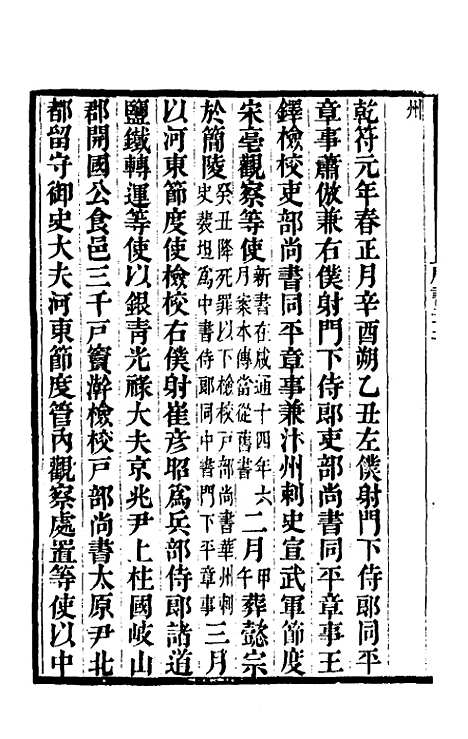 州
乾符元年春正月辛酉朔乙丑左僕射門下侍郎同平
章事蕭倣兼右僕射門下侍郎吏部尚書同平章事王
鐸檢校吏部尚書同平章事兼汴州刺史宣武軍節度
宋亳觀察等使新書在咸通十四年六月案本傳當從舊書二月甲午葬懿宗
於簡陵癸丑降死罪以下檢校戸部尚書華州刺史裴坦爲中書侍郎同中書門下平章事三月
以河東節度使檢校右僕射崔彦昭爲兵部侍郎諸道
鹽鐵轉運等使以銀青光祿大夫京兆尹上柱國岐山
郡開國公食邑三千戸竇澣檢校戸部尚書太原尹北
都留守御史大夫河東節度管内觀察處置等使以中